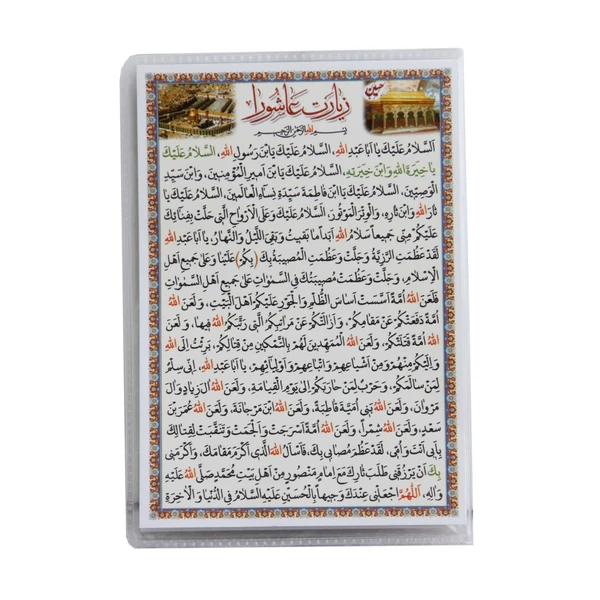 زیارت عاشورا
حسین
بِسْمِ اللهِ الرَّحْمٰنِ الرَّحیمِ
اَلسَّلامُ عَلَیْكَ یا اَباعَبْدِاللهِ، السَّلامُ عَلَیْكَ یَابْنَ رَسُولِ اللهِ، السَّلامُ عَلَیْكَ
یا خِیَرَةَ اللهِ وَابْنَ خِیَرَتِهِ، السَّلامُ عَلَیْكَ یَابْنَ اَمیرِ الْمُؤْمِنینَ، وَابْنَ سَیِّدِ
الْوَصِیّینَ، السَّلامُ عَلَیْكَ یَابْنَ فاطِمَةَ سَیِّدَةِ نِساءِ الْعالَمینَ، اَلسَّلامُ عَلَیْكَ یا
ثارَ اللهِ وَابْنَ ثارِهِ، وَالْوِتْرَ الْمَوْتُورَ، اَلسَّلامُ عَلَیْكَ وَعَلَى الْاَرْواحِ الَّتی حَلَّتْ بِفِنائِكَ
عَلَیْكُمْ مِنّی جَمیعاً سَلامُ اللهِ اَبَداً ما بَقیتُ وَبَقِیَ اللَّیْلُ وَالنَّهارُ، یا اَباعَبْدِاللهِ
لَقَدْ عَظُمَتِ الرَّزِیَّةُ وَجَلَّتْ وَعَظُمَتِ الْمُصیبَةُ بِكَ (بِكُمْ) عَلَیْنا وَعَلى جَمیعِ اَهْلِ
الْاِسْلامِ، وَجَلَّتْ وَعَظُمَتْ مُصیبَتُكَ فِی السَّمٰواتِ عَلى جَمیعِ اَهْلِ السَّمٰواتِ
فَلَعَنَ اللهُ اُمَّةً اَسَّسَتْ اَساسَ الظُّلْمِ وَالْجَوْرِ عَلَیْكُمْ اَهْلَ الْبَیْتِ، وَلَعَنَ اللهُ
اُمَّةً دَفَعَتْكُمْ عَنْ مَقامِكُمْ، وَاَزالَتْكُمْ عَنْ مَراتِبِكُمُ الَّتی رَتَّبَكُمُ اللهُ فیها، وَلَعَنَ
اللهُ اُمَّةً قَتَلَتْكُمْ، وَلَعَنَ اللهُ الْمُمَهِّدینَ لَهُمْ بِالتَّمْكینِ مِنْ قِتالِكُمْ، بَرِئْتُ اِلَى اللهِ
وَاِلَیْكُمْ مِنْهُمْ وَمِنْ اَشْیاعِهِمْ وَاَتْباعِهِمْ وَاَوْلِیائِهِمْ، یا اَباعَبْدِاللهِ، اِنّی سِلْمٌ
لِمَنْ سالَمَكُمْ، وَحَرْبٌ لِمَنْ حارَبَكُمْ اِلى یَوْمِ الْقِیامَةِ، وَلَعَنَ اللهُ الَ زِیادٍ وَالَ
مَرْوانَ، وَلَعَنَ اللهُ بَنی اُمَیَّةَ قاطِبَةً، وَلَعَنَ اللهُ ابْنَ مَرْجانَةَ، وَلَعَنَ اللهُ عُمَرَ بْنَ
سَعْدٍ، وَلَعَنَ اللهُ شِمْراً، وَلَعَنَ اللهُ اُمَّةً اَسْرَجَتْ وَاَلْجَمَتْ وَتَنَقَّبَتْ لِقِتالِكَ
بِاَبی اَنْتَ وَاُمّی، لَقَدْ عَظُمَ مُصابی بِكَ، فَاَسْاَلُ اللهَ الَّذی اَكْرَمَ مَقامَكَ، وَاَكْرَمَنی
بِكَ اَنْ یَرْزُقَنی طَلَبَ ثارِكَ مَعَ اِمامٍ مَنْصُورٍ مِنْ اَهْلِ بَیْتِ مُحَمَّدٍ صَلَّى اللهُ عَلَیْهِ
وَالِهِ، اَللّٰهُمَّ اجْعَلْنی عِنْدَكَ وَجیهاً بِالْحُسَیْنِ عَلَیْهِ السَّلامُ فِی الدُّنْیا وَالْاخِرَةِ